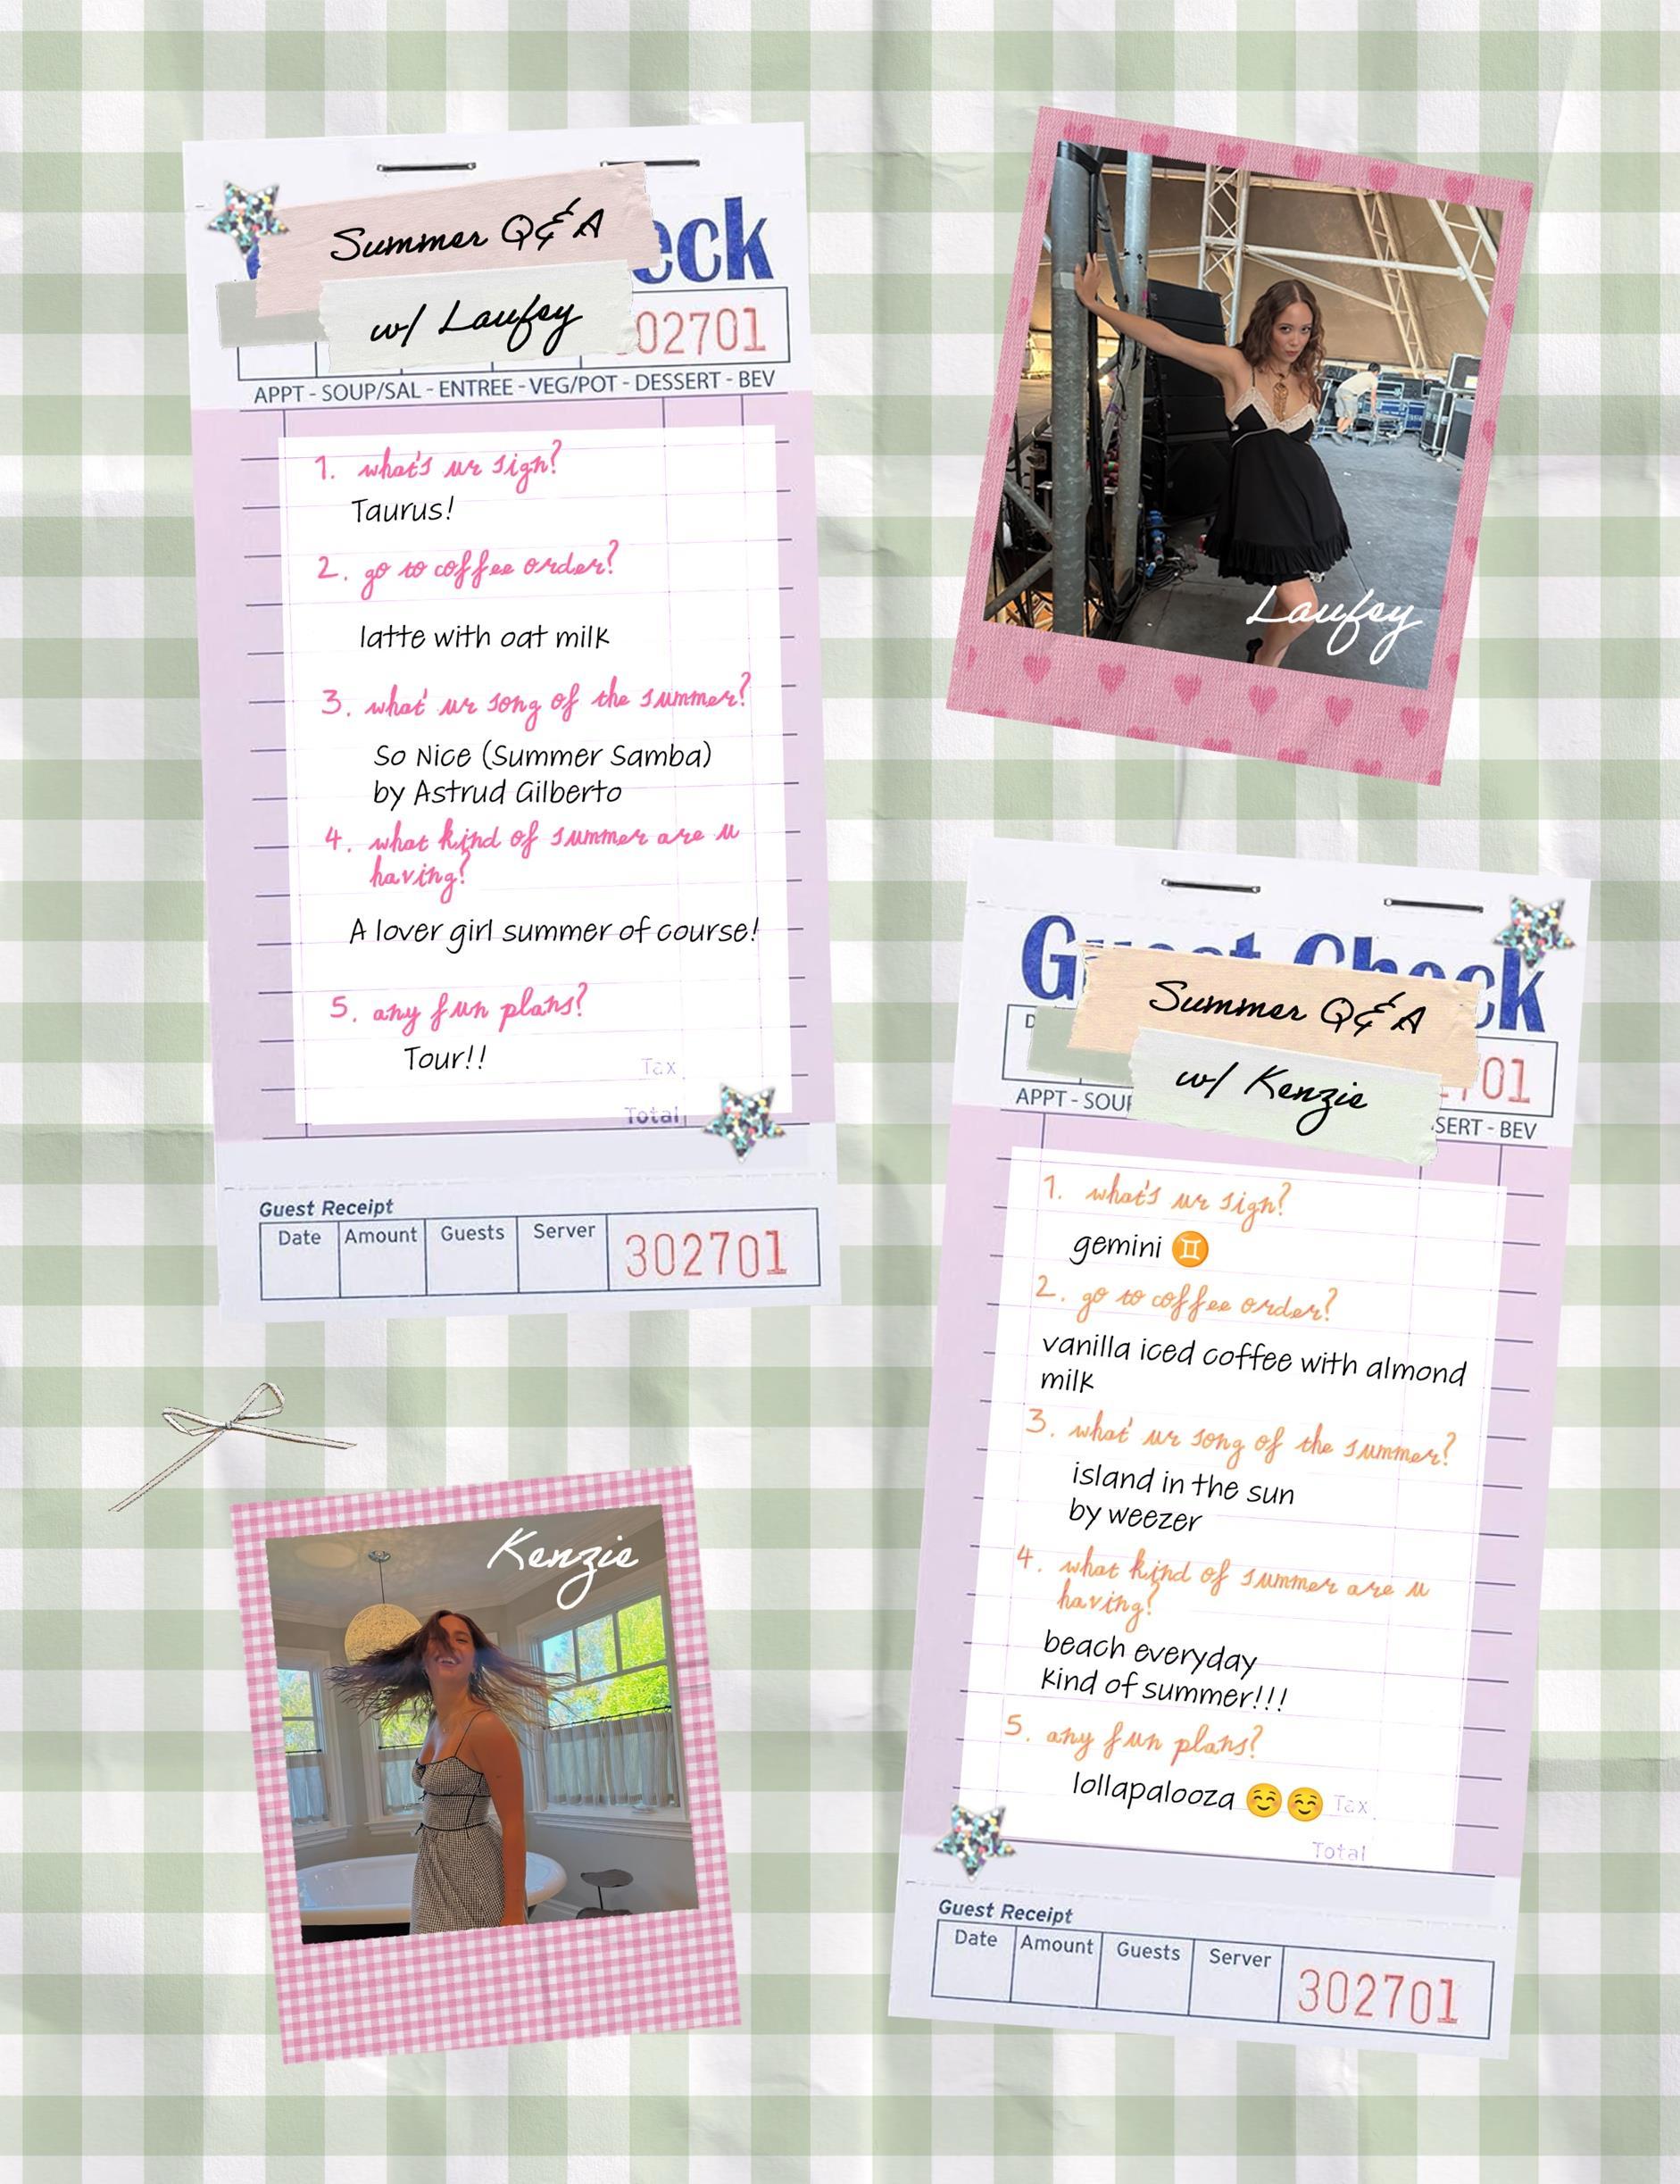 Summer Q&A
eck
w/ Laufey
02701
APPT - SOUP/SAL - ENTREE - VEG/POT - DESSERT - BEV
1. what's ur sign?
Taurus!
2. go to coffee order?
latte with oat milk
3. what' ur song of the summer?
So Nice (Summer Samba)
by Astrud Gilberto
4. what kind of summer are u
having?
A lover girl summer of course!
5. any fun plans?
Tour!!
Tax
Total
Guest Receipt
Date Amount Guests Server
302701
Laufey
Guest Check
Summer Q&A
w/ Kenzie
701
APPT - SOUP
SERT - BEV
1. what's ur sign?
gemini ♊
2. go to coffee order?
vanilla iced coffee with almond
milk
3. what' ur song of the summer?
island in the sun
by weezer
4. what kind of summer are u
having?
beach everyday
kind of summer!!!
5. any fun plans?
lollapalooza ☺️☺️
Tax
Total
Guest Receipt
Date Amount Guests Server
302701
Kenzie